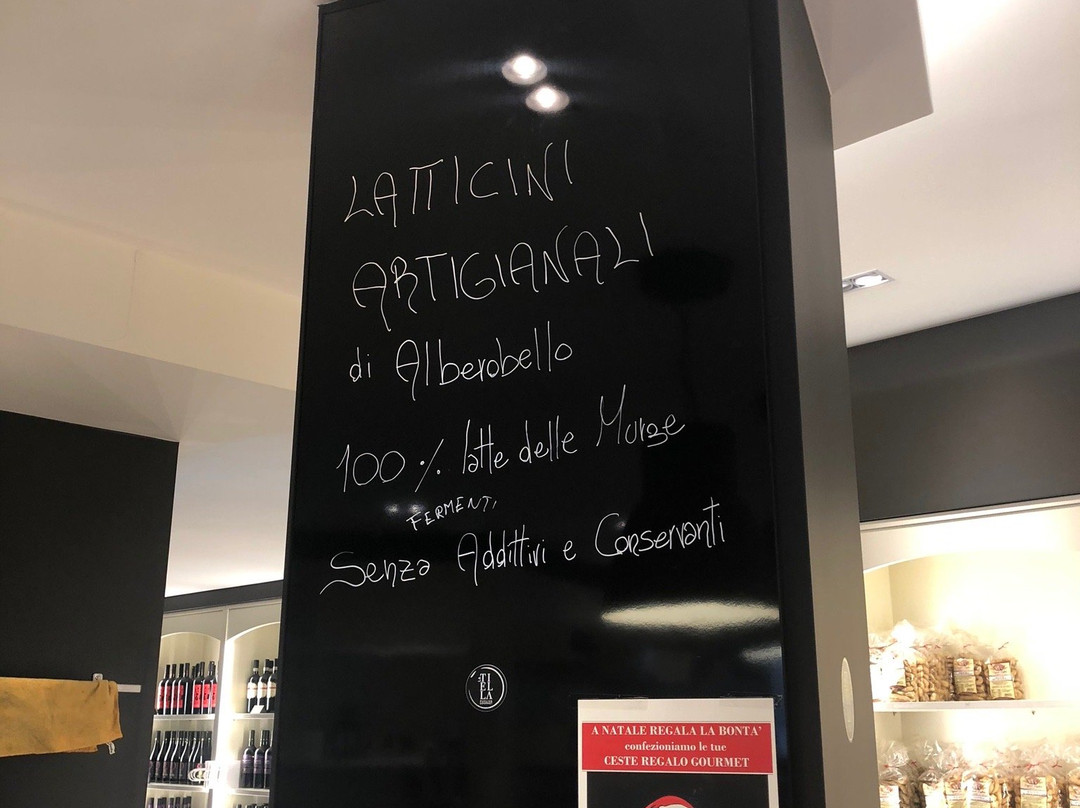 LATTICINI
ARTIGIANALI
di Alberobello
100% latte delle Murge
FERMENTI
Senza Addittivi e Conservanti
TI
EL
LA
A NATALE REGALA LA BONTA'
confezioniamo le tue
CESTE REGALO GOURMET